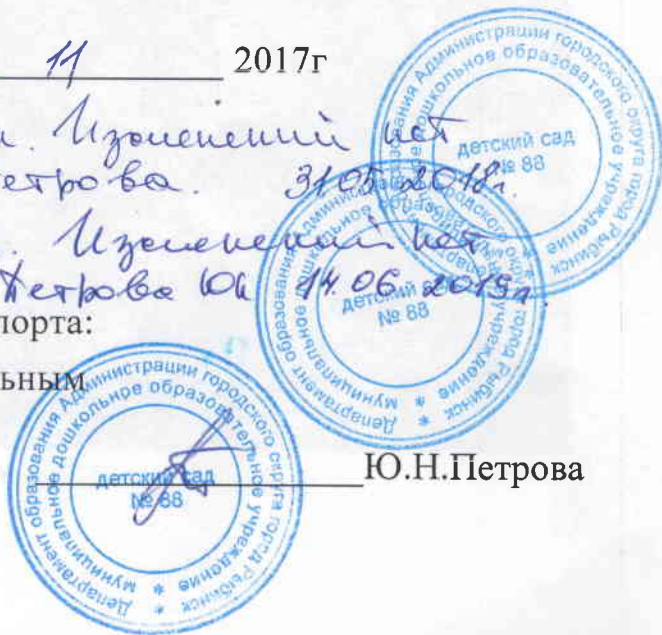 11 2017г
Изменений нет
Петрова. 31.05.2018г.
Изменений нет
Петрова Юн 14.06.2019г.
порта:
льным
Ю.Н.Петрова
Департамент образования Администрации городского округа город Рыбинск
муниципальное дошкольное образовательное учреждение
детский сад
№ 88
Департамент образования Администрации городского округа город Рыбинск
муниципальное дошкольное образовательное учреждение
детский сад
№ 88
Департамент образования Администрации городского округа город Рыбинск
муниципальное дошкольное образовательное учреждение
детский сад
№ 88